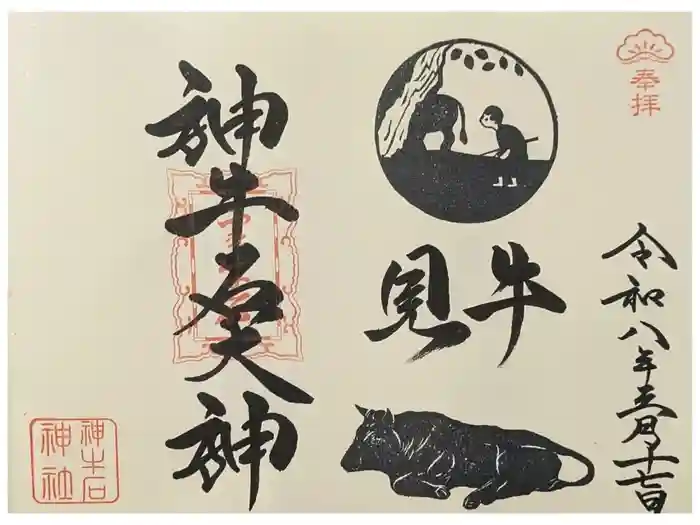 奉拝
令和八年三月十七日
見牛
神牛石天神
神牛石
神社